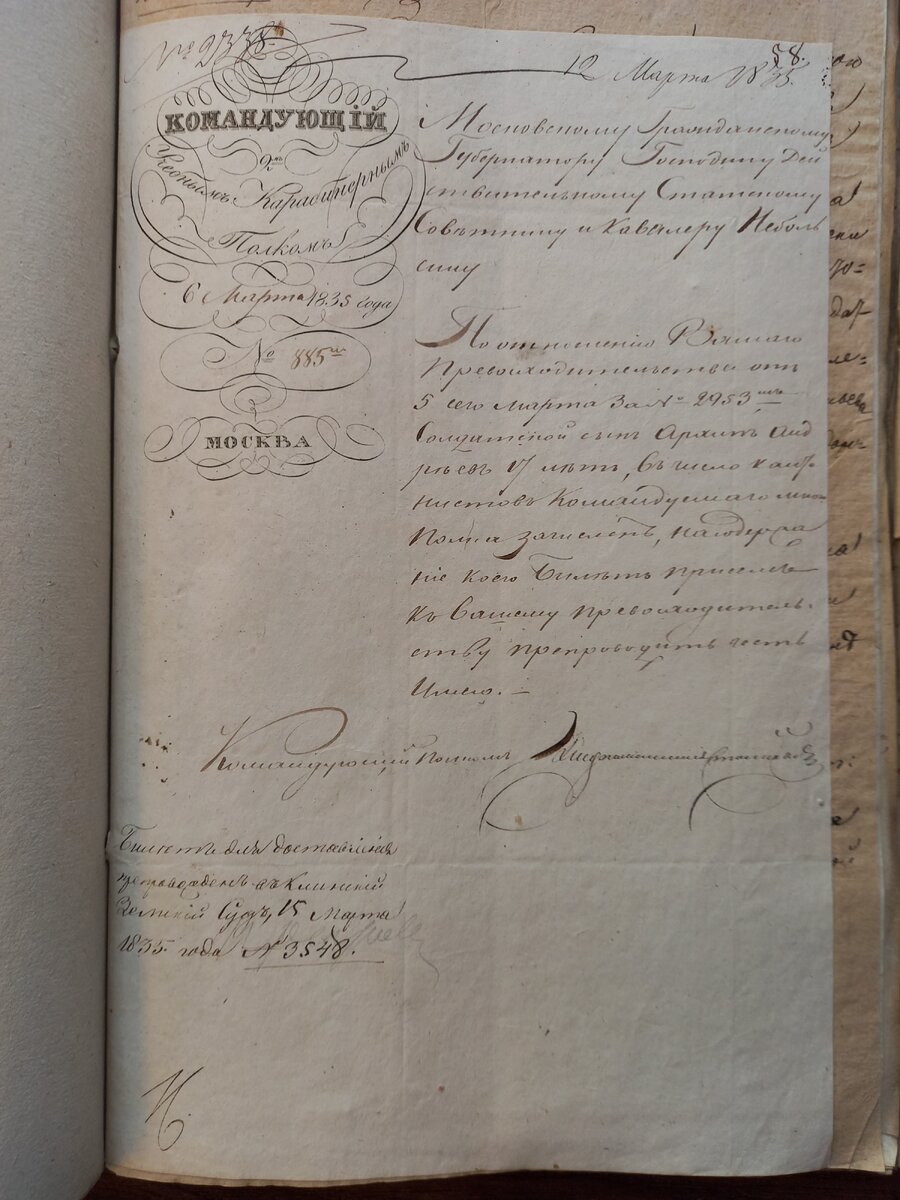 № 2338.
58.
12 Марта 1835.
КОМАНДУЮЩІЙ
2мъ
Учебнымъ Карабинернымъ
Полкомъ
6 Марта 1835 года
№ 885
МОСКВА
Московскому Гражданскому
Губернатору Господину Дѣй
ствительному Статскому
Совѣтнику и Кавалеру Неболь
сину
По отношенію Вашего
Превосходительства отъ
5 сего Марта За № 2953мъ
Солдатской сынъ Архипъ Анд
рѣевъ 17 лѣтъ, въ число канто
нистовъ Командуемаго мною
Полка зачисленъ, на содержа
ніе коего Билѣтъ при семъ
къ Вашему превосходитель
ству препроводить честь
Имею. —
Командующій Полкомъ
Билетъ для доставленія
препровожденъ въ Клинскій
Земскій Судъ, 15 Марта
1835 года № 3548.